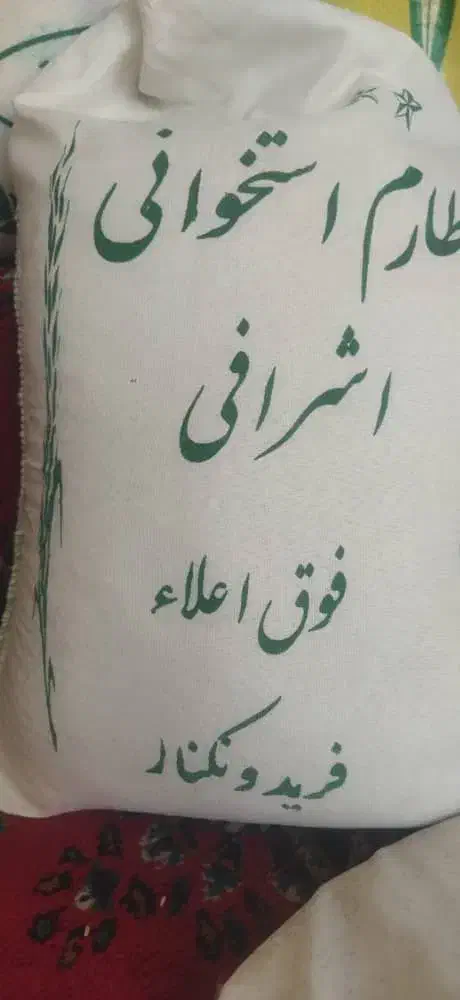 طارم استخوانی
اشرافی
فوق اعلاء
فریدونکنار